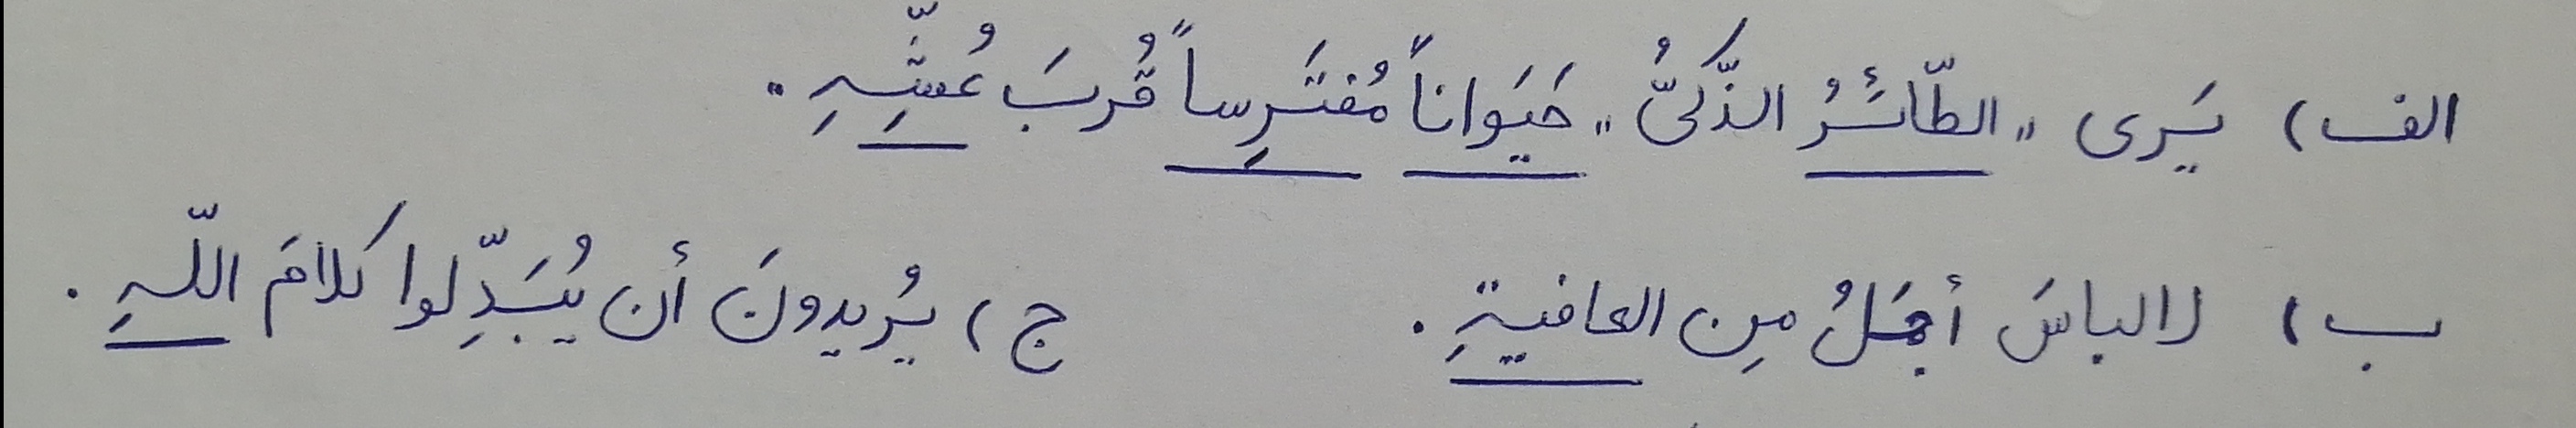 الف) يَرى „ الطّائَرُ الذّكىُّ „ حَيَواناً مُفتَرِساً قُربَ عُشِّهِ .
ب) لا لباسَ أجمَلُ مِن العافيةِ . ج) يُريدونَ أن يُبَدِّلوا كلامَ اللّهِ .